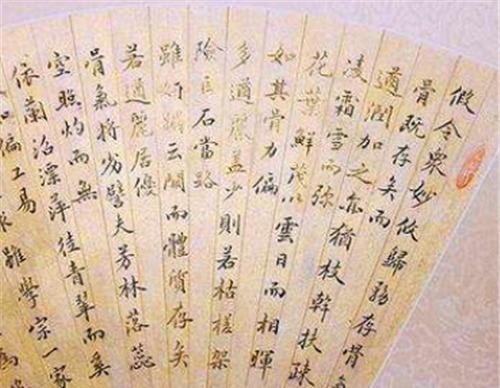 假令衆妙攸歸務存骨
骨既存矣而
遒潤加之亦猶枝幹扶疎
凌霜雪而弥
花葉鮮茂以雲日而相暉
如其骨力偏
多遒麗蓋少則若枯槎架
險巨石當路
雖妍媚云闕而體質存矣
若遒麗居優
骨氣將劣譬夫芳林落蕊
空照灼而無
依蘭沼漂萍徒青翠而奚
偏工易
求雖學宗一家